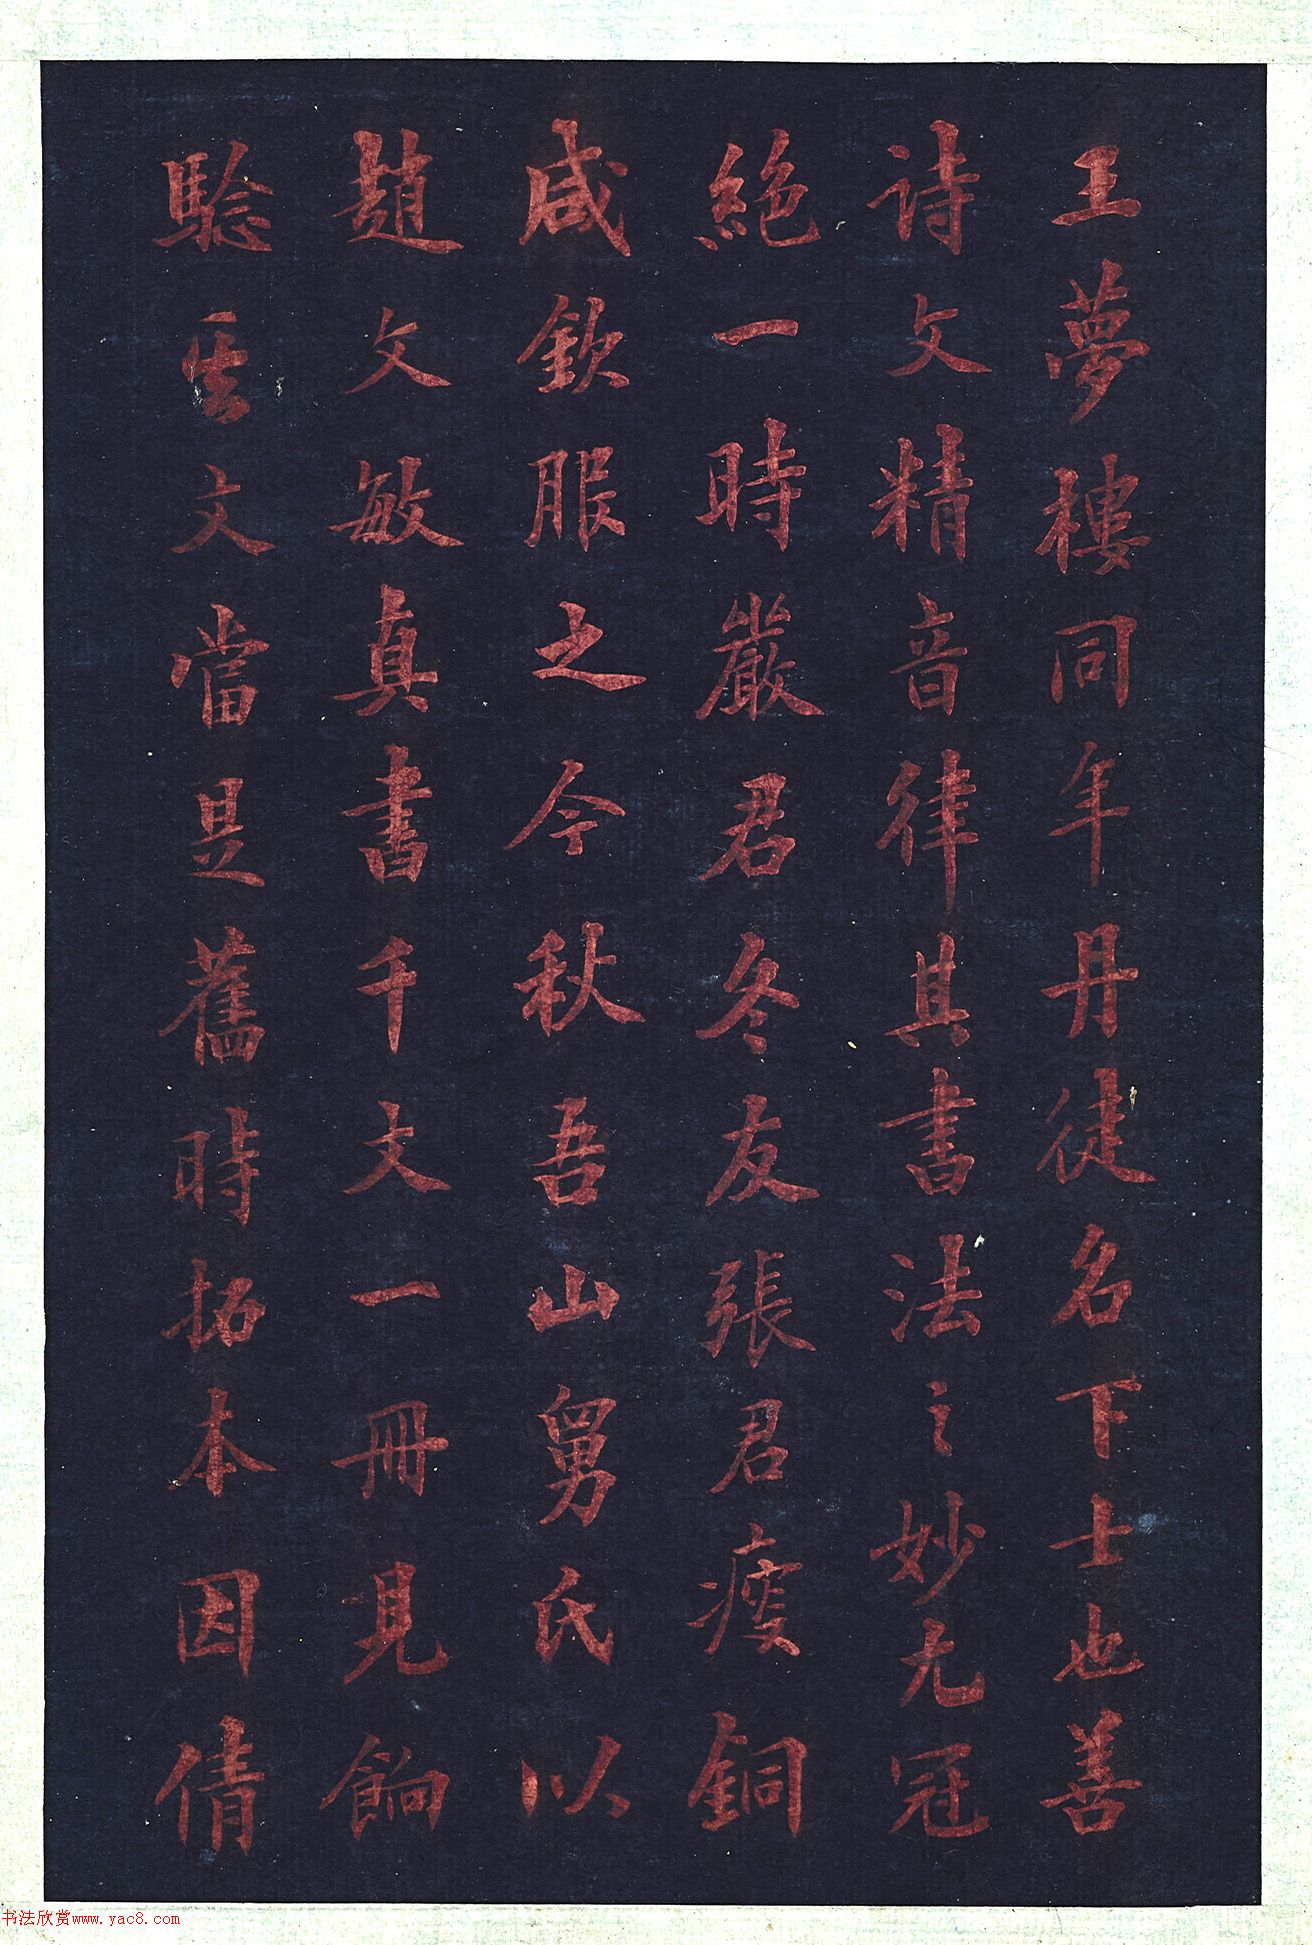 王夢樓同年丹徒名下士也善
詩文精音律其書法之妙尤冠
絶一時嚴君冬友張君瘦銅
咸欽服之今秋吾山舅氏以
趙文敏真書千文一冊見餉
騐其文當是舊時拓本因倩
书法欣赏www.yac8.com